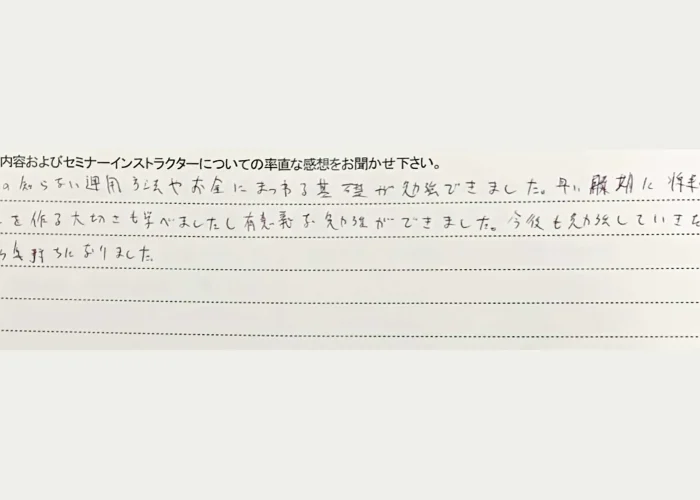 内容およびセミナーインストラクターについての率直な感想をお聞かせ下さい。
の知らない運用方法やお金にまつわる基礎が勉強できました。早い時期に将来
を作る大切さも学べましたし有意義な勉強ができました。今後も勉強していきた
気持ちになりました